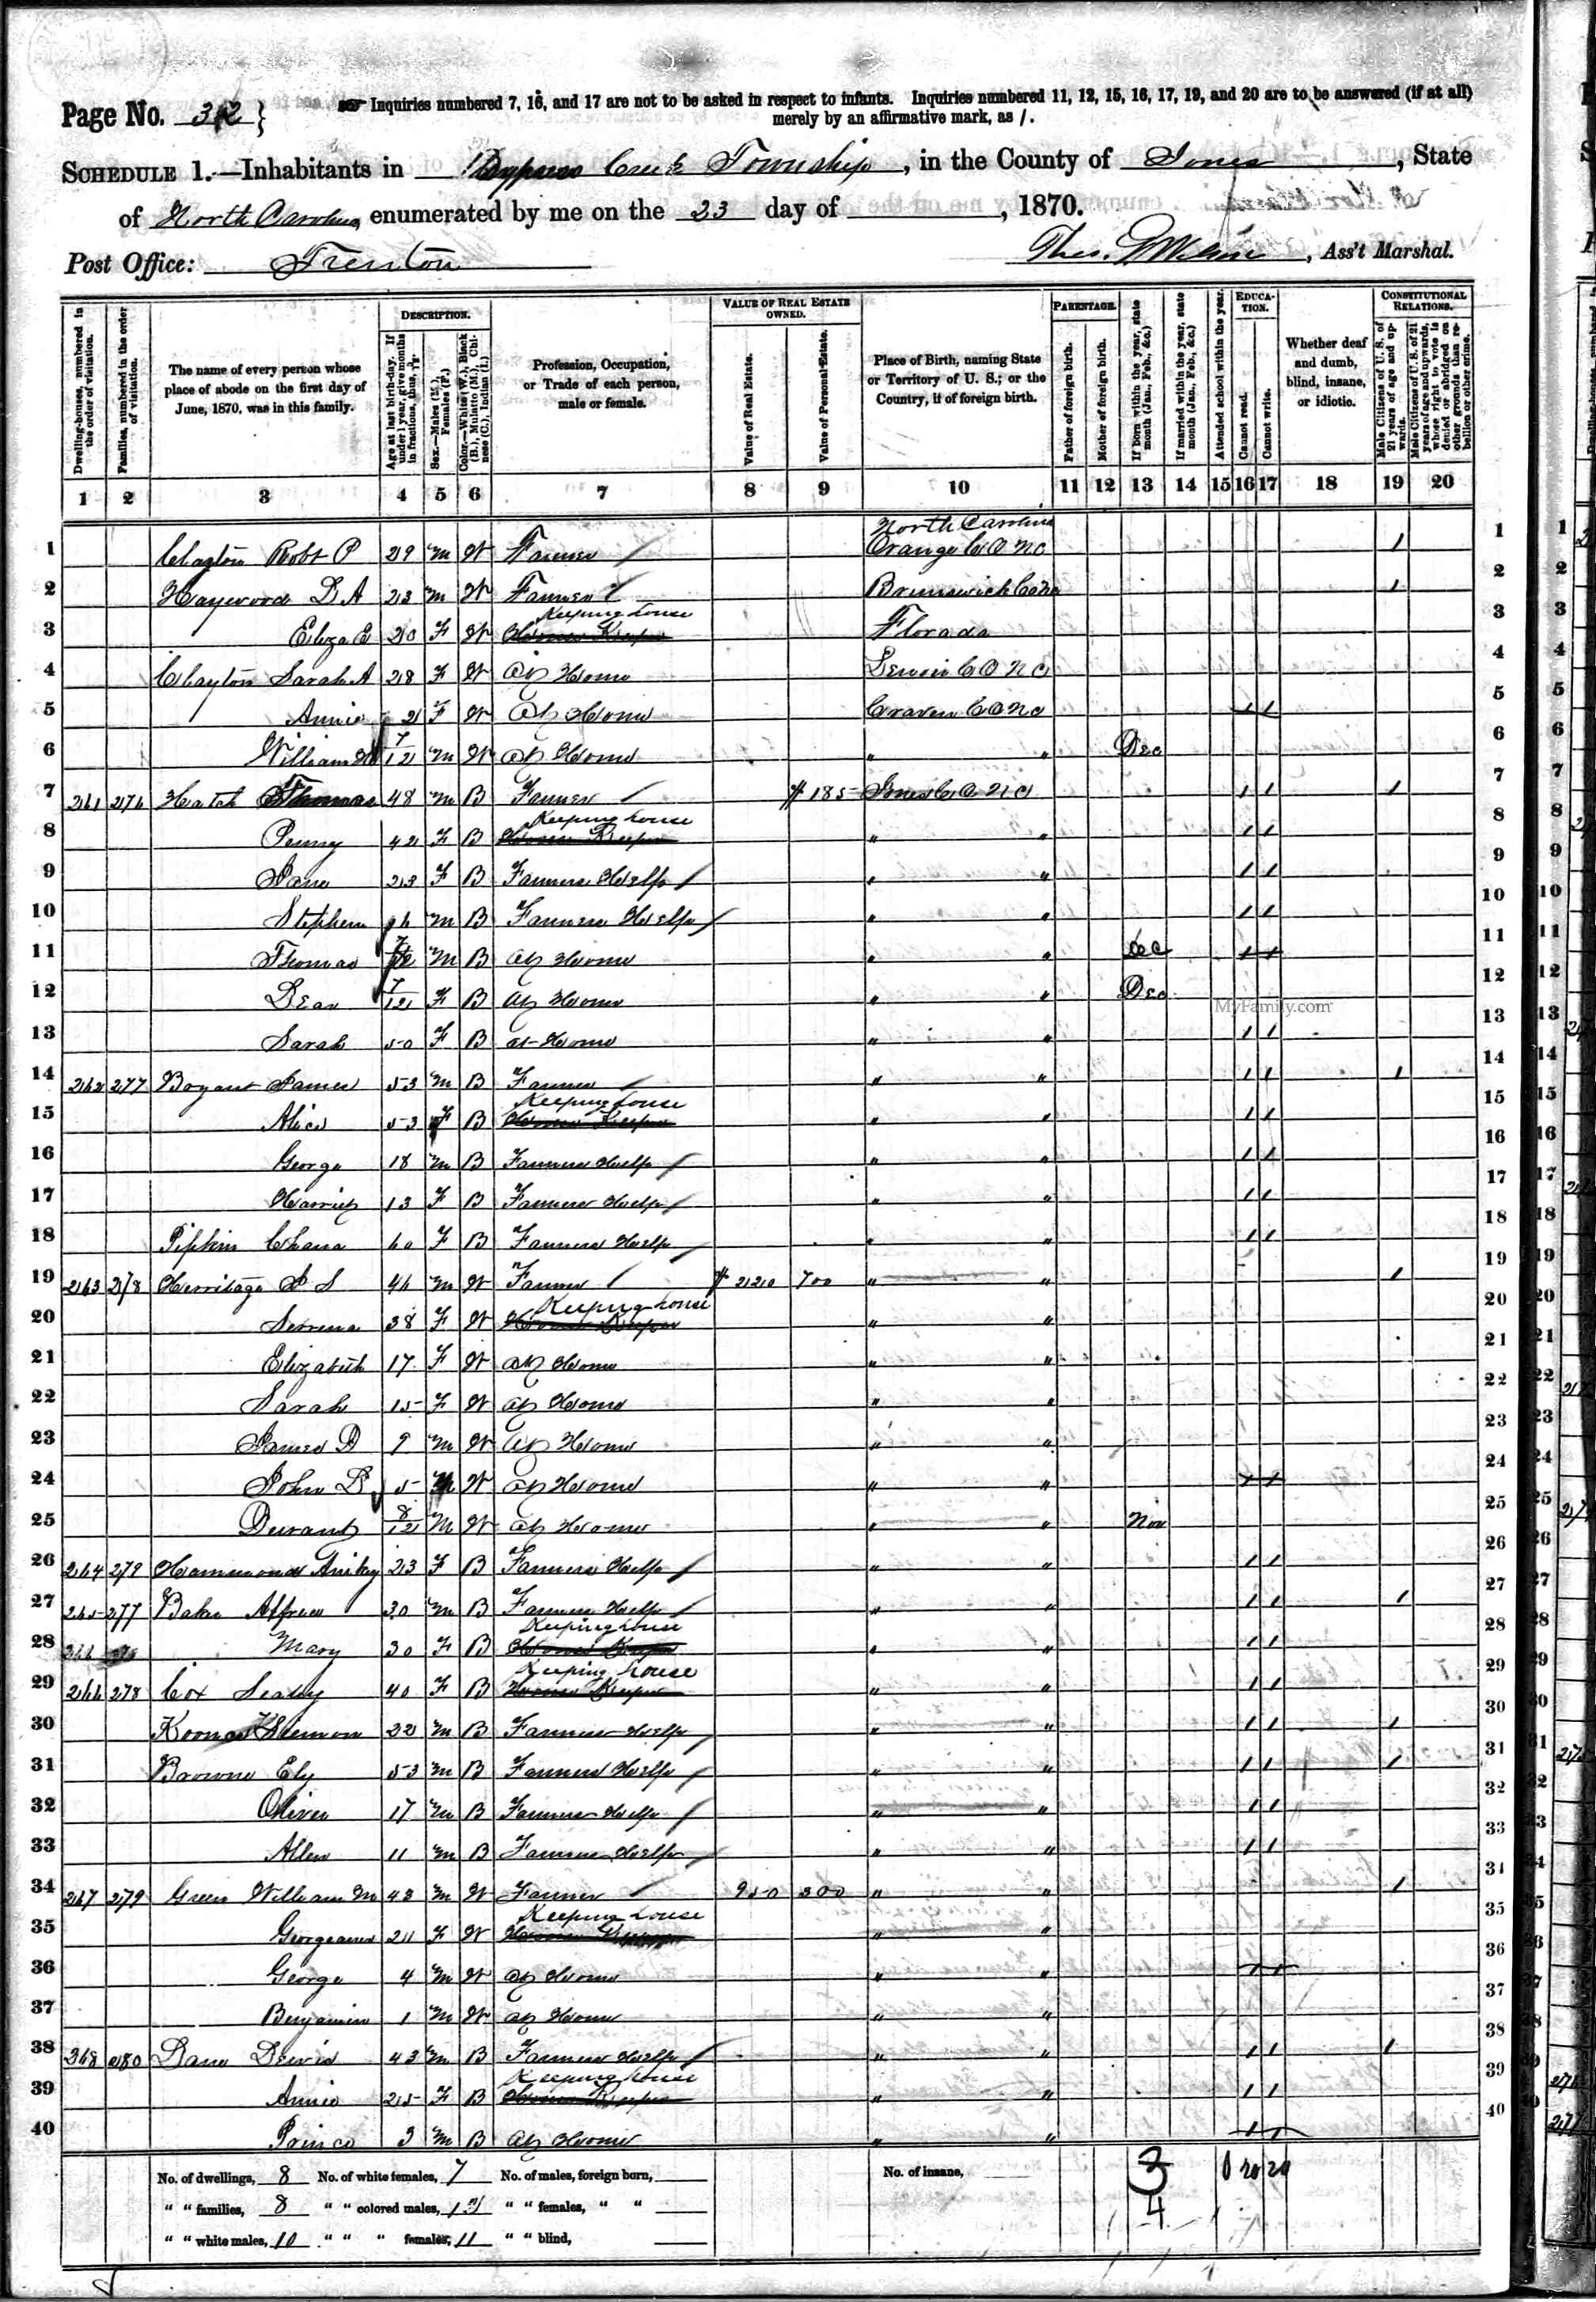 Page No. 32
Inquiries numbered 7, 16, and 17 are not to be asked in respect to infants. Inquiries numbered 11, 12, 15, 16, 17, 19, and 20 are to be answered (if at all)
merely by an affirmative mark, as /.
SCHEDULE 1.—Inhabitants in Cypress Creek Township, in the County of Jones, State
of North Carolina, enumerated by me on the 23 day of , 1870.
Post Office: Trenton Thos. Wilson, Ass't Marshal.
Dwelling-houses, numbered in the order of visitation.
Families, numbered in the order of visitation.
The name of every person whose place of abode on the first day of June, 1870, was in this family.
DESCRIPTION.
Age at last birth-day. If under 1 year, give months in fractions, thus,
Sex.—Males (M.), Females (F.)
Color.—White (W.), Black (B.), Mulatto (M.), Chinese (C.), Indian (I.)
Profession, Occupation, or Trade of each person, male or female.
VALUE OF REAL ESTATE OWNED.
Value of Real Estate.
Value of Personal Estate.
Place of Birth, naming State or Territory of U. S.; or the Country, if of foreign birth.
PARENTAGE.
Father of foreign birth.
Mother of foreign birth.
If born within the year, state month (Jan., Feb., &c.)
If married within the year, state month (Jan., Feb., &c.)
Attended school within the year.
EDUCATION.
Cannot read.
Cannot write.
Whether deaf and dumb, blind, insane, or idiotic.
CONSTITUTIONAL RELATIONS.
Male Citizens of U. S. of 21 years of age and upwards.
Male Citizens of U. S. of 21 years of age and upwards, whose right to vote is denied or abridged on other grounds than rebellion or other crime.
1 2 3 4 5 6 7 8 9 10 11 12 13 14 15 16 17 18 19 20
North Carolina
1 Clayton Robt P 29 M W Farmer Orange CO NC / 1
2 Haywood D A 23 M W Farmer Brunswick Co / 2
Keeping house
3 Eliza E 20 F W Florada 3
4 Clayton Sarah A 28 F W At Home Lenoir CO NC 4
5 Annie 2 F W At Home Craven CO NC / / 5
6 William H 7/12 M W At Home " " Dec 6
7 261 276 Hatch Thomas 48 M B Farmer $185 Jones CO NC / / / 7
Keeping house
8 Penny 42 F B " " / / 8
9 Jane 23 F B Farmers Help " " / / 9
10 Stephen M B Farmers Help " " / / 10
11 Thomas M B At Home " " Dec / / 11
12 7/12 F B At Home " " Dec 12
MyFamily.com
13 Sarah 50 F B at Home " " / / 13
14 262 277 Bryant James 53 M B Farmer " " / / / 14
Keeping house
15 Alice 53 F B " " / / 15
16 George 18 M B Farmers Help " " / / 16
17 Harriet 13 F B Farmers Help " " / / 17
18 Pipkin Chana 60 F B Farmers Help " " / / 18
19 263 278 Herritage J S 46 M W Farmer $220 700 " " / 19
Keeping house
20 Serrena 38 F W " " 20
21 Elizabeth 17 F W At Home " " 21
22 Sarah 15 F W At Home " " 22
23 James D 9 M W At Home " " 23
24 John D 5 M W At Home " " / / 24
25 Durant 8/12 M W At Home " " Nov 25
26 264 279 Hammond 23 F B Farmers Help " " / / 26
27 265 277 Baker Alfred 30 M B Farmers Help " " / / / 27
Keeping house
28 Mary 30 F B " " / / 28
Keeping house
29 266 278 Cox 40 F B " " / / 29
30 Koonce 22 M B Farmers Help " " / / / 30
31 Browne Ely 53 M B Farmers Help " " / / / 31
32 Oliver 17 M B Farmers Help " " / / 32
33 Allen 11 M B Farmers Help " " / / 33
34 267 279 Green William M 43 M W Farmer 950 300 " " / 34
Keeping house
35 F W " " 35
36 George 4 M W At Home " " / / 36
37 Benjamin 1 M W At Home " " 37
38 268 280 M B Farmers Help " " / / / 38
Keeping house
39 Annie 25 F B " " / / 39
40 Prince 3 M B At Home " " / / 40
No. of dwellings, 8 No. of white females, 7 No. of males, foreign born, No. of insane, 3 20 20
" " families, 8 " " colored males, 12 " " females, " " 4
" " white males, 10 " " " females, 11 " " blind,